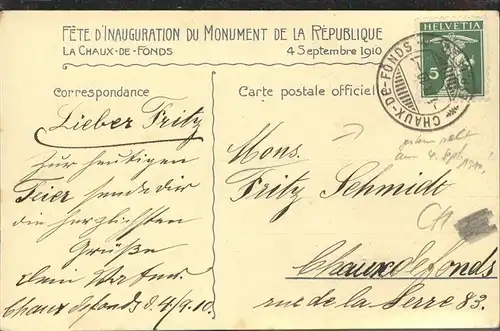 FÊTE D'INAUGURATION DU MONUMENT DE LA RÉPUBLIQUE
LA CHAUX-DE-FONDS 4 SEPTEMBRE 1910
HELVETIA
5
CHAUX-DE-FONDS
Correspondance
Carte postale officielle
Lieber Fritz
Zur heutigen
Feier sende dir
die herzlichsten
Grüße
dein Vater
Chaux defonds d. 4/9.10.
Mons.
Fritz Schmidt
Chauxdefonds
rue de la Serre 83.
am 4. Sept. 1910
CH